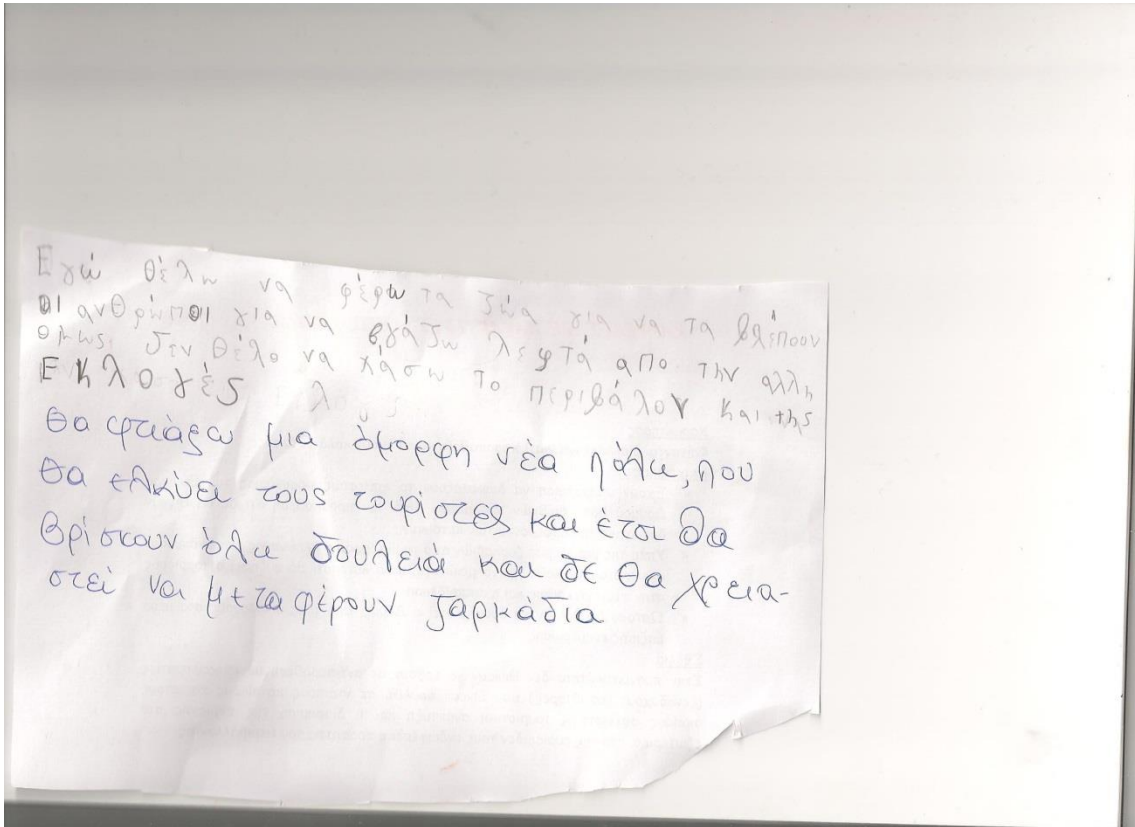 Εγώ θέλω να φέρω τα ζώα για να τα βλέπουν
οι ανθρώποι για να βγάζω λεφτά απο την αλλη
ομως δεν θέλο να χάσω το περιβάλον και της
Εκλογές
θα φτιάξω μια όμορφη νέα πόλη, που
θα ελκύει τους τουρίστες και έτσι θα
βρίσκουν όλοι δουλειά και δε θα χρεια-
στεί να μεταφέρουν ζαρκάδια